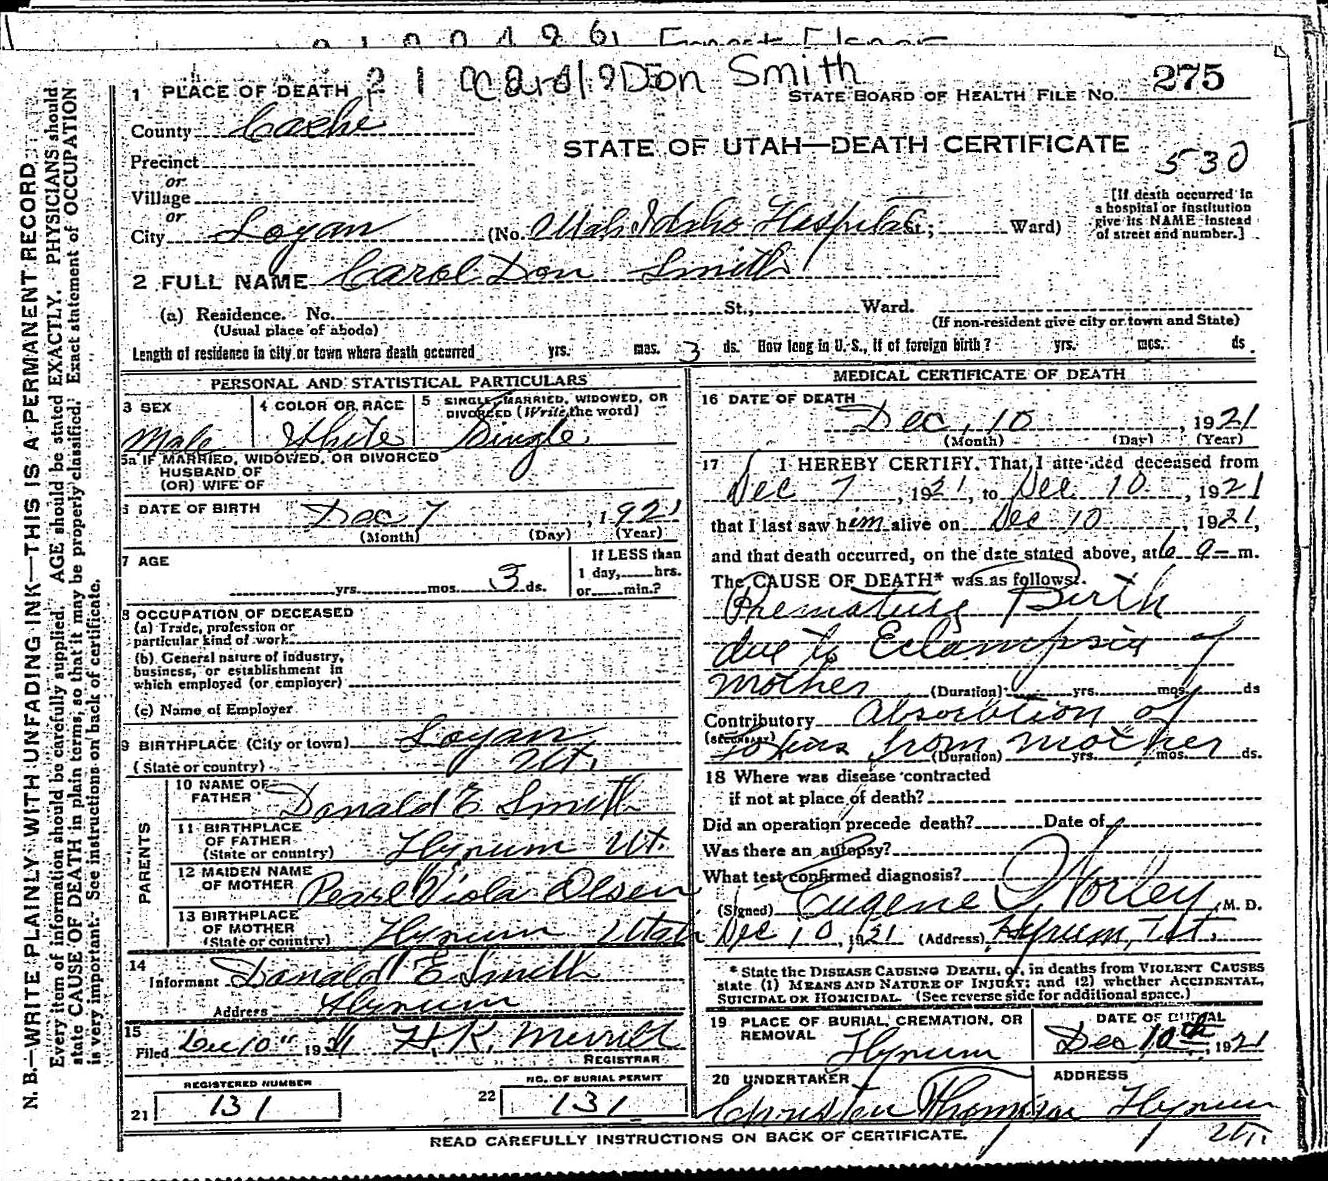 Carol Don Smith
275
1 PLACE OF DEATH
STATE BOARD OF HEALTH FILE NO.
County Cache
STATE OF UTAH—DEATH CERTIFICATE
530
Precinct
or
Village
or
City Logan (No. Utah Idaho Hospital St.; Ward)
[If death occurred in
a hospital or institution
give its NAME instead
of street and number.]
2 FULL NAME Carol Don Smith
(a) Residence. No. St., Ward.
(Usual place of abode) (If non-resident give city or town and State)
Length of residence in city or town where death occurred yrs. mos. 3 ds. How long in U. S., if of foreign birth? yrs. mos. ds
PERSONAL AND STATISTICAL PARTICULARS
3 SEX
Male
4 COLOR OR RACE
White
5 SINGLE, MARRIED, WIDOWED, OR
DIVORCED (Write the word)
Single
5a IF MARRIED, WIDOWED, OR DIVORCED
HUSBAND OF
(OR) WIFE OF
6 DATE OF BIRTH Dec 7, 1921
(Month) (Day) (Year)
7 AGE
yrs. mos. 3 ds.
If LESS than
1 day, hrs.
or min.?
8 OCCUPATION OF DECEASED
(a) Trade, profession or
particular kind of work
(b) General nature of industry,
business, or establishment in
which employed (or employer)
(c) Name of Employer
9 BIRTHPLACE (City or town) Logan
(State or country) Ut.
PARENTS
10 NAME OF
FATHER Donald E Smith
11 BIRTHPLACE
OF FATHER
(State or country) Hyrum Ut.
12 MAIDEN NAME
OF MOTHER Pearl Viola Olsen
13 BIRTHPLACE
OF MOTHER
(State or country) Hyrum Utah
14
Informant Donald E Smith
Address Hyrum
15
Filed Dec 10" 1921 H. K. Merrill
REGISTRAR
REGISTERED NUMBER
21 131
NO. OF BURIAL PERMIT
22 131
MEDICAL CERTIFICATE OF DEATH
16 DATE OF DEATH
Dec, 10, 1921
(Month) (Day) (Year)
17 I HEREBY CERTIFY. That I attended deceased from
Dec 7, 1921, to Dec 10, 1921
that I last saw him alive on Dec 10, 1921,
and that death occurred, on the date stated above, at 6 a m.
The CAUSE OF DEATH* was as follows:
Premature Birth
due to Eclampsia of
mother (Duration) yrs. mos. ds
Contributory Absorbtion of
(SECONDARY)
toxins from mother
(Duration) yrs. mos. ds.
18 Where was disease contracted
if not at place of death?
Did an operation precede death? Date of
Was there an autopsy?
What test confirmed diagnosis?
(Signed) Eugene Worley, M. D.
Dec 10, 1921 (Address) Hyrum, Ut.
* State the DISEASE CAUSING DEATH, or, in deaths from VIOLENT CAUSES
state (1) MEANS AND NATURE OF INJURY; and (2) whether ACCIDENTAL,
SUICIDAL OR HOMICIDAL. (See reverse side for additional space.)
19 PLACE OF BURIAL, CREMATION, OR
REMOVAL
Hyrum
DATE OF BURIAL
Dec 10th, 1921
20 UNDERTAKER
ADDRESS
Thompson Hyrum
Ut.
READ CAREFULLY INSTRUCTIONS ON BACK OF CERTIFICATE.
N. B.—WRITE PLAINLY WITH UNFADING INK—THIS IS A PERMANENT RECORD
Every item of information should be carefully supplied. AGE should be stated EXACTLY. PHYSICIANS should
state CAUSE OF DEATH in plain terms, so that it may be properly classified. Exact statement of OCCUPATION
is very important. See instructions on back of certificate.